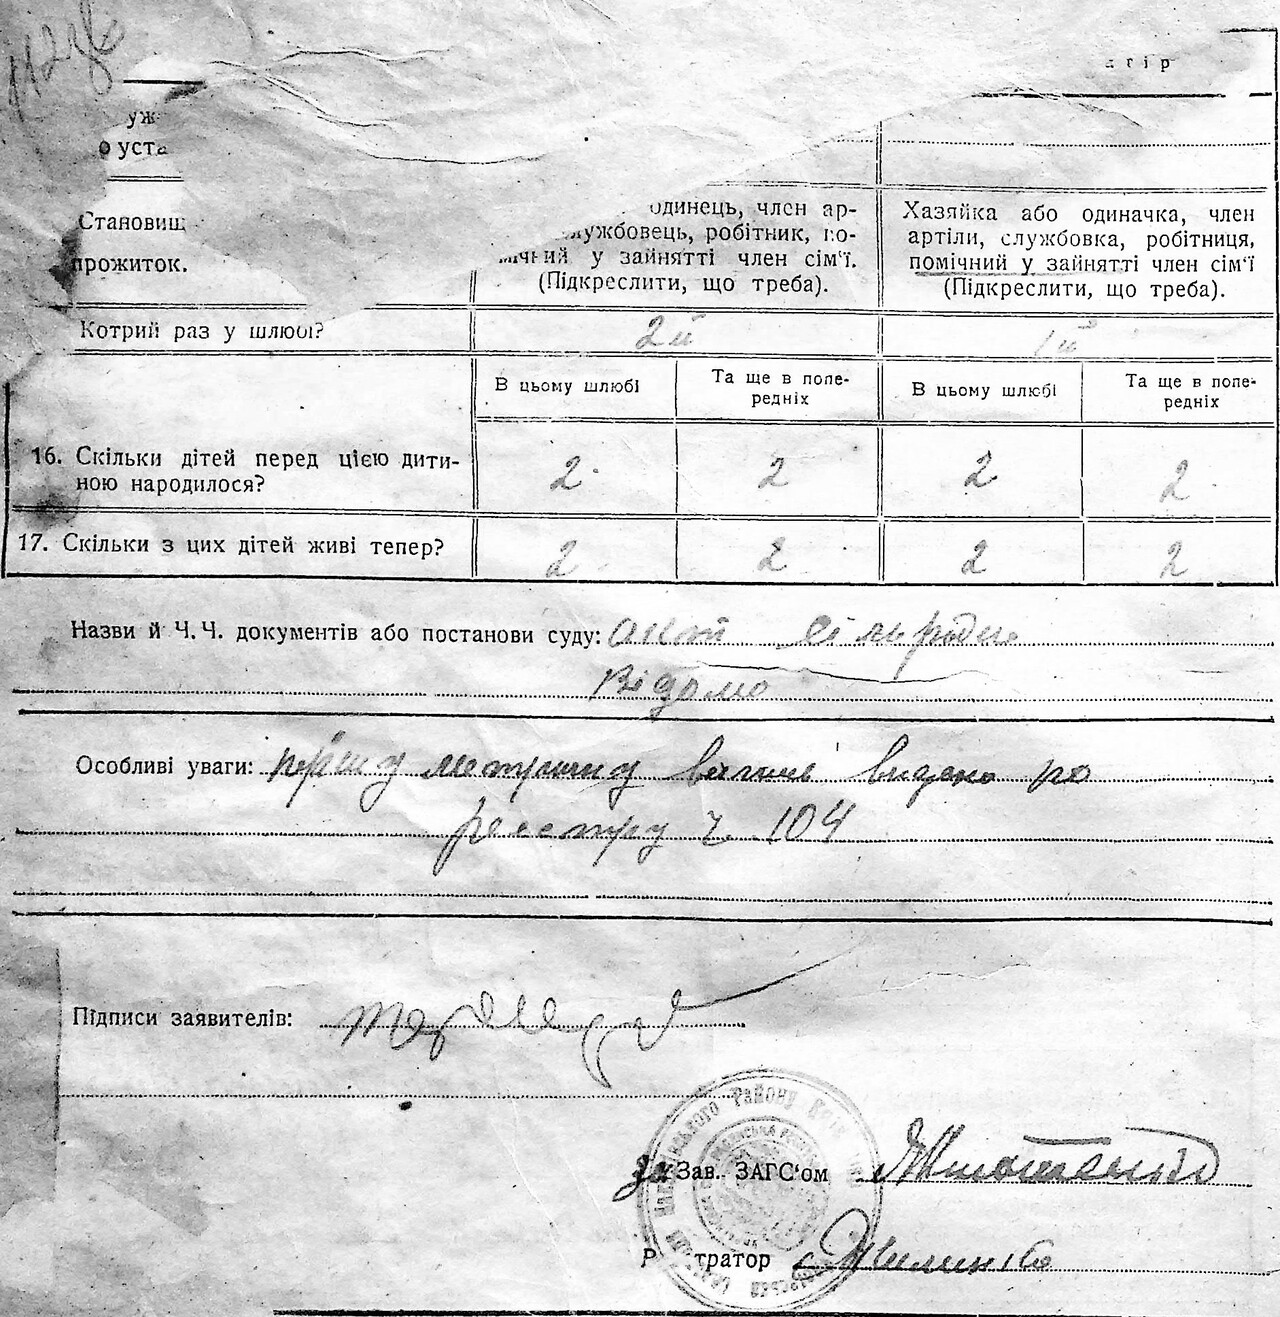 а т і р
уж
о уста
Становищ
прожиток.
одинець, член ар-
службовець, робітник, по-
мічний у зайнятті член сім'ї.
(Підкреслити, що треба).
Хазяйка або одиначка, член
артіли, службовка, робітниця,
помічний у зайнятті член сім'ї
(Підкреслити, що треба).
Котрий раз у шлюбі? 2й 1й
В цьому шлюбі Та ще в попе-редніх В цьому шлюбі Та ще в попе-редніх
16. Скільки дітей перед цією дити-
ною народилося? 2 2 2 2
17. Скільки з цих дітей живі тепер? 2 2 2 2
Назви й Ч. Ч. документів або постанови суду: акт сільради
Відомо
Особливі уваги: першу метричну видано по
реестру ч. 104
Підписи заявителів:
за Зав. ЗАГС'ом
Р тратор
РАЙОНУ